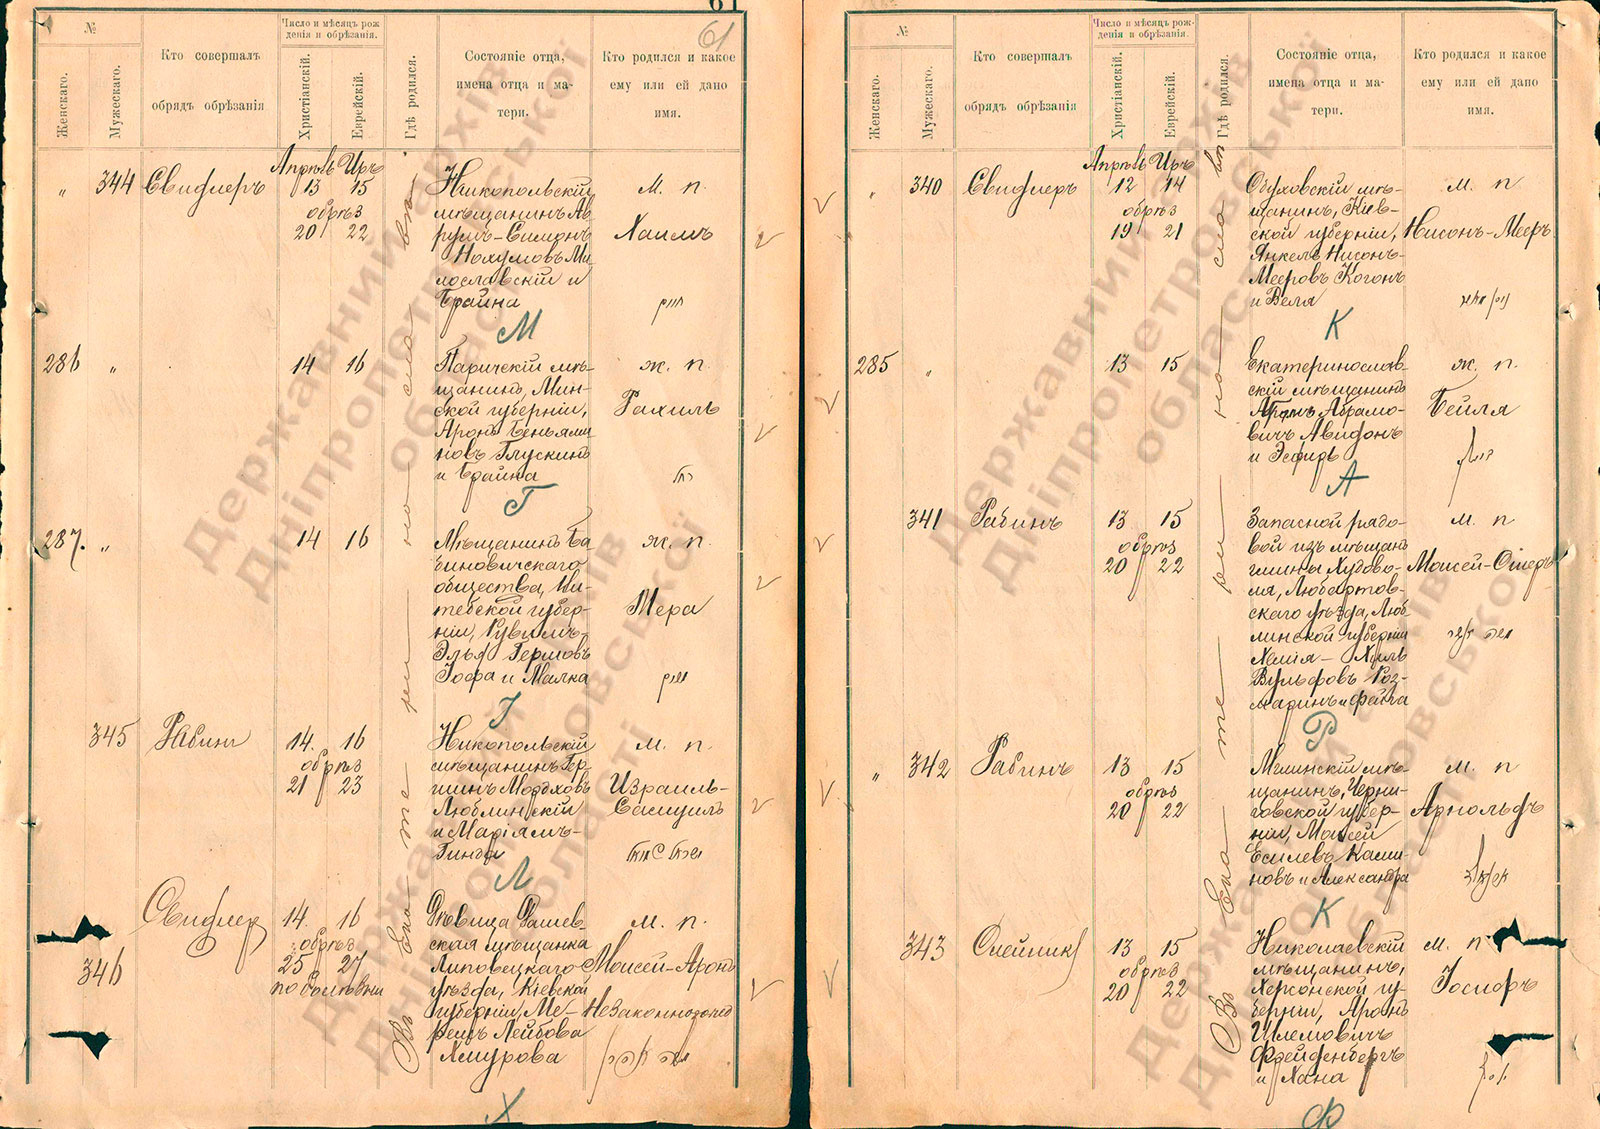 61
61
№
Женскаго.
Мужескаго.
Кто совершалъ
обрядъ обрѣзанія
Число и мѣсяцъ рож
денія и обрѣзанія.
Христіанскій.
Еврейскій.
Гдѣ родился.
Состояніе отца,
имена отца и ма-
тери.
Кто родился и какое
ему или ей дано
имя.
Апрѣль Иръ
" 344 Свифлеръ 13 15
обрѣз
20 22
Никопольскій
мѣщанинъ Ав
румъ-Симонъ
Нохумовъ Ми
лославскій и
Брайна
м. п.
Хаимъ
חיים
М
286 " 14 16
Паричскій мѣ-
щанинъ, Мин-
ской губерніи,
Аронъ Беньями
новъ Глускинъ
и Брайна
ж. п.
Рахиль
Г
287. " 14 16
Мѣщанинъ Ба
биновичскаго
общества, Ви-
тебской губер-
ніи, Рувимъ-
Элья Гершовъ
Іофа и Малка
ж. п.
Мера
І
345 Рабинъ 14. 16
обрѣз
21 23
Никопольскій
мѣщанинъ Гер-
шинъ Мордховъ
Люблинскій
и Маріямъ-
Гинда
м. п.
Израиль-
Самуилъ
Л
346 Свифлер 14. 16
обрѣз
25 27
по болѣзни
Дѣвица Рашев-
ская мѣщанка
Липовецкаго
уѣзда, Кіевской
губерніи, Ме-
Лейбова
Хмурова
м. п.
Моисей-Аронъ
Незаконнорожд
Х
Въ Ека-те-ри-но-сла-вѣ
№
Женскаго.
Мужескаго.
Кто совершалъ
обрядъ обрѣзанія
Число и мѣсяцъ рож-
денія и обрѣзанія.
Христіанскій.
Еврейскій.
Гдѣ родился.
Состояніе отца,
имена отца и ма-
тери.
Кто родился и какое
ему или ей дано
имя.
Апрѣль Иръ
" 340 Свифлеръ 12 14
обрѣз
19 21
Обуховскій мѣ-
щанинъ, Кіев-
ской губерніи,
Янкель Нисонъ-
Мееровъ Когонъ
и Веля
м. п
Нисонъ-Мееръ
К
285 " 13 15
Екатеринослав-
скій мѣщанинъ
Абрамо-
вичъ Авидонъ
и Эсфирь
ж. п.
Бейля
А
341 Рабинъ 13 15
обрѣз
20 22
Запасной рядо-
вой изъ мѣщанъ
гмины Худово-
ля, Любартов-
скаго уѣзда, Люб
линской губерніи
Хемія-Хаилъ
Вульфовъ Роз-
маринъ и Фейга
м. п
Моисей-Ошеръ
Р
" 342 Рабинъ 13 15
обрѣз
20 22
Мглинскій мѣ-
щанинъ, Черни-
говской губер-
ніи, Моисей
Есилевъ Ками-
новъ и Александра
м. п
Арнольдъ
К
343 Олейникъ 13 15
обрѣз
20 22
Николаевскій
мѣщанинъ,
Херсонской гу-
берніи, Аронъ
Шлемовичъ
Фрейденбергъ
и Хана
м. п
Іосифъ
Ф
Въ Ека-те-ри-но-сла-вѣ
Державний архів
Дніпропетровської
області